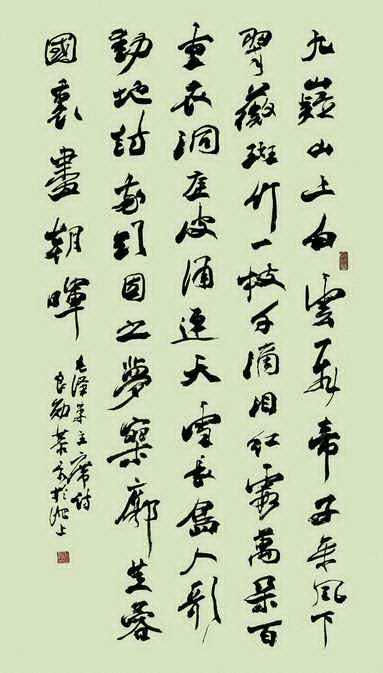 九嶷山上白雲飛帝子乘風下
翠薇斑竹一枝千滴泪紅霞萬朵百
重衣洞庭波涌連天雪長島人歌
動地詩我欲因之夢寥廓芙蓉
國裏盡朝暉
毛澤東主席詩